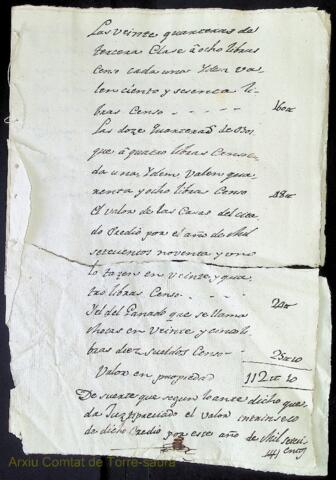 Las veinte quarteras de
tercera Clase à ocho libras
Censo cada una Ydem va-
len ciento y sesenta li-
bras Censo - - - - - 160 ₶
Las doze Quarteras de Bos-
que à quatro libras Censo ca-
da una Ydem valen qua-
renta y ocho libras Censo 48 ₶
El valor de las Casas del cita-
do Predio por el año de Mil
setecientos noventa y uno
lo tazan en veinte, y qua-
tro libras Censo - - - 24 ₶
Y el del Ganado que se llama
en veinte y cinco li-
bras diez sueldos Censo - 25 ₶ 10
Valor en propiedad 112 ₶ 10
De suerte que segun lo ante dicho que-
da Juzpreciado el valor intrinseco
de dicho Predio por este año de Mil setec-
Arxiu Comtat de Torre-saura